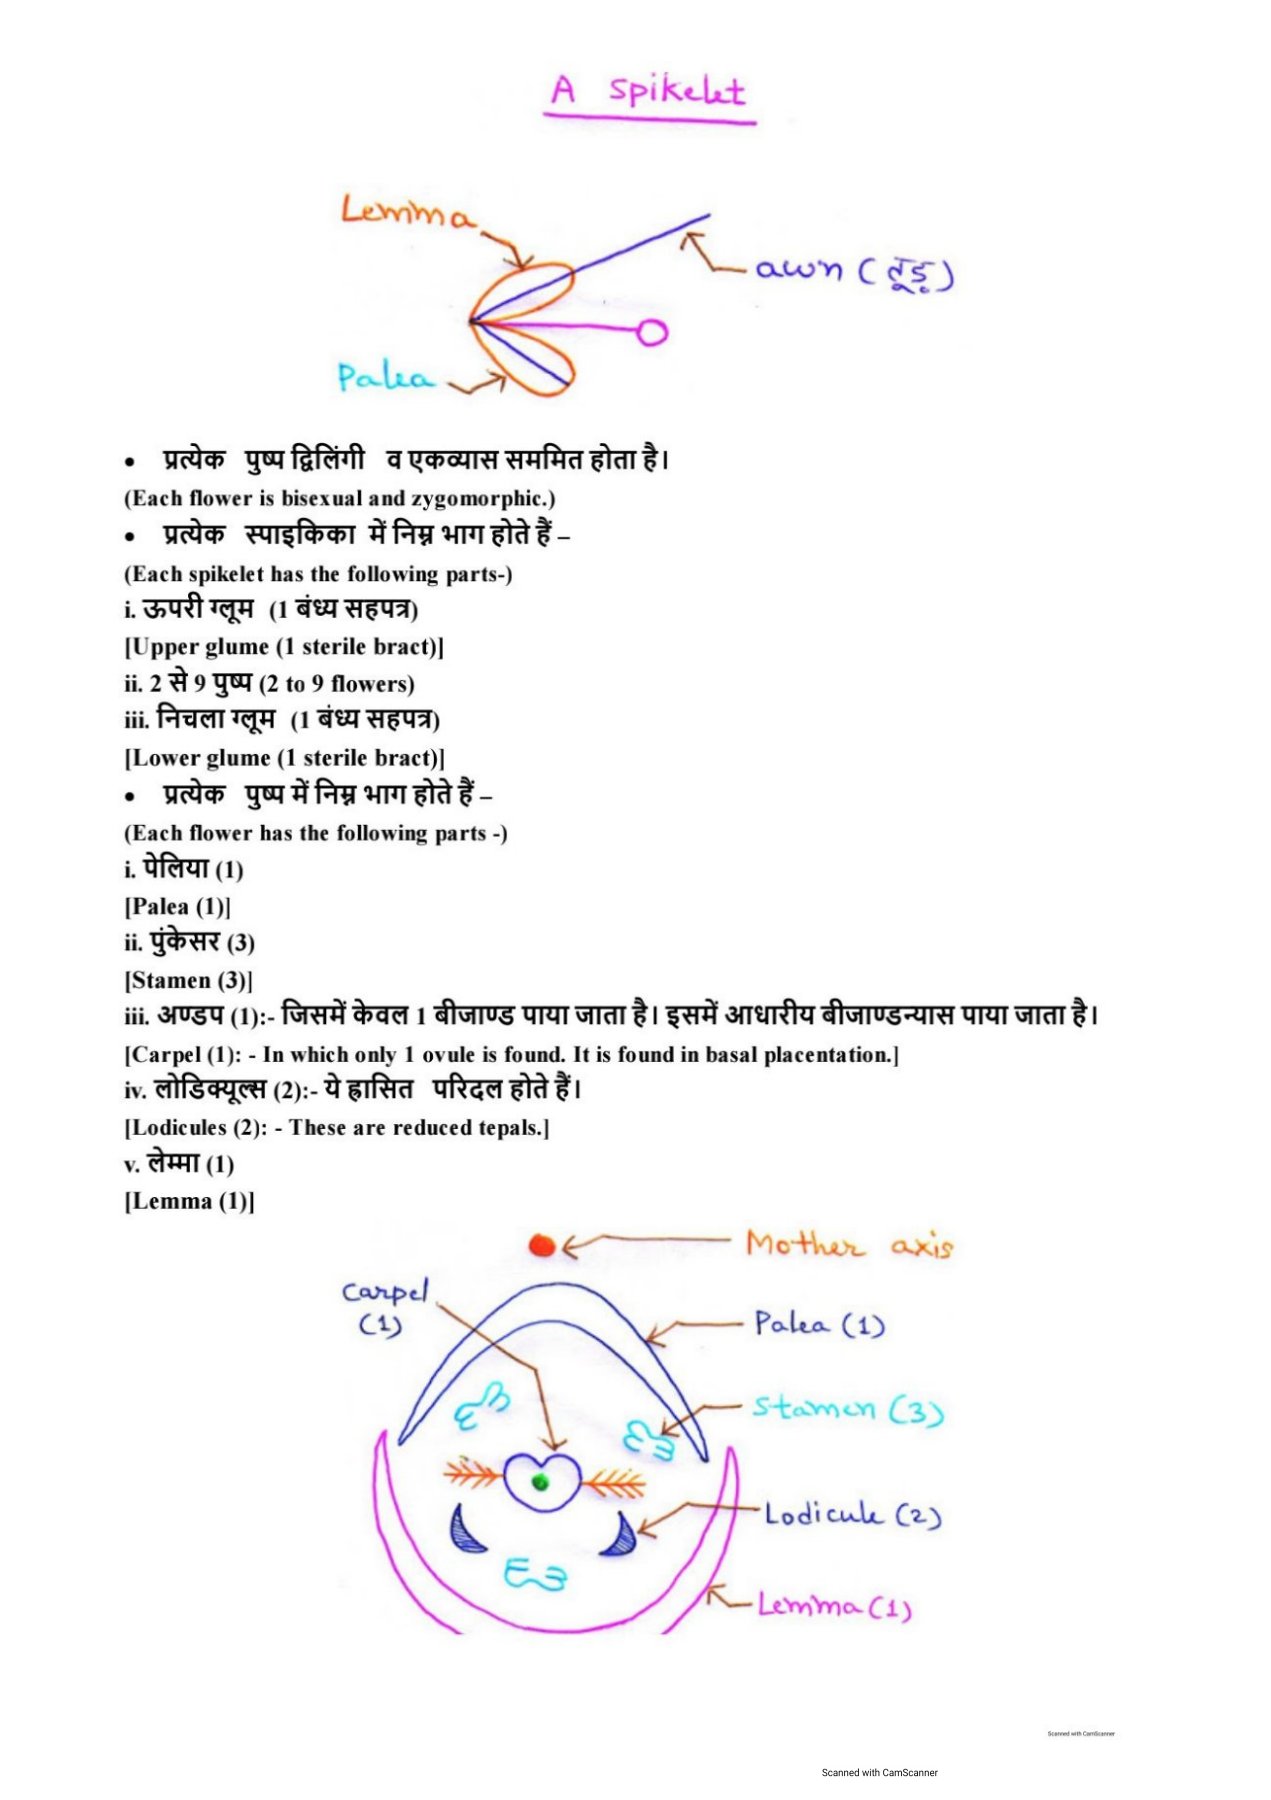 A Spikelet
Lemma
awn (तूड़)
Palea
• प्रत्येक पुष्प द्विलिंगी व एकव्यास सममित होता है।
(Each flower is bisexual and zygomorphic.)
• प्रत्येक स्पाइकिका में निम्न भाग होते हैं –
(Each spikelet has the following parts-)
i. ऊपरी ग्लूम (1 बंध्य सहपत्र)
[Upper glume (1 sterile bract)]
ii. 2 से 9 पुष्प (2 to 9 flowers)
iii. निचला ग्लूम (1 बंध्य सहपत्र)
[Lower glume (1 sterile bract)]
• प्रत्येक पुष्प में निम्न भाग होते हैं –
(Each flower has the following parts -)
i. पेलिया (1)
[Palea (1)]
ii. पुंकेसर (3)
[Stamen (3)]
iii. अण्डप (1):- जिसमें केवल 1 बीजाण्ड पाया जाता है। इसमें आधारीय बीजाण्डन्यास पाया जाता है।
[Carpel (1): - In which only 1 ovule is found. It is found in basal placentation.]
iv. लोडिक्यूल्स (2):- ये ह्रासित परिदल होते हैं।
[Lodicules (2): - These are reduced tepals.]
v. लेम्मा (1)
[Lemma (1)]
Mother axis
Carpel
(1)
Palea (1)
Stamen (3)
Lodicule (2)
Lemma (1)
Scanned with CamScanner
Scanned with CamScanner